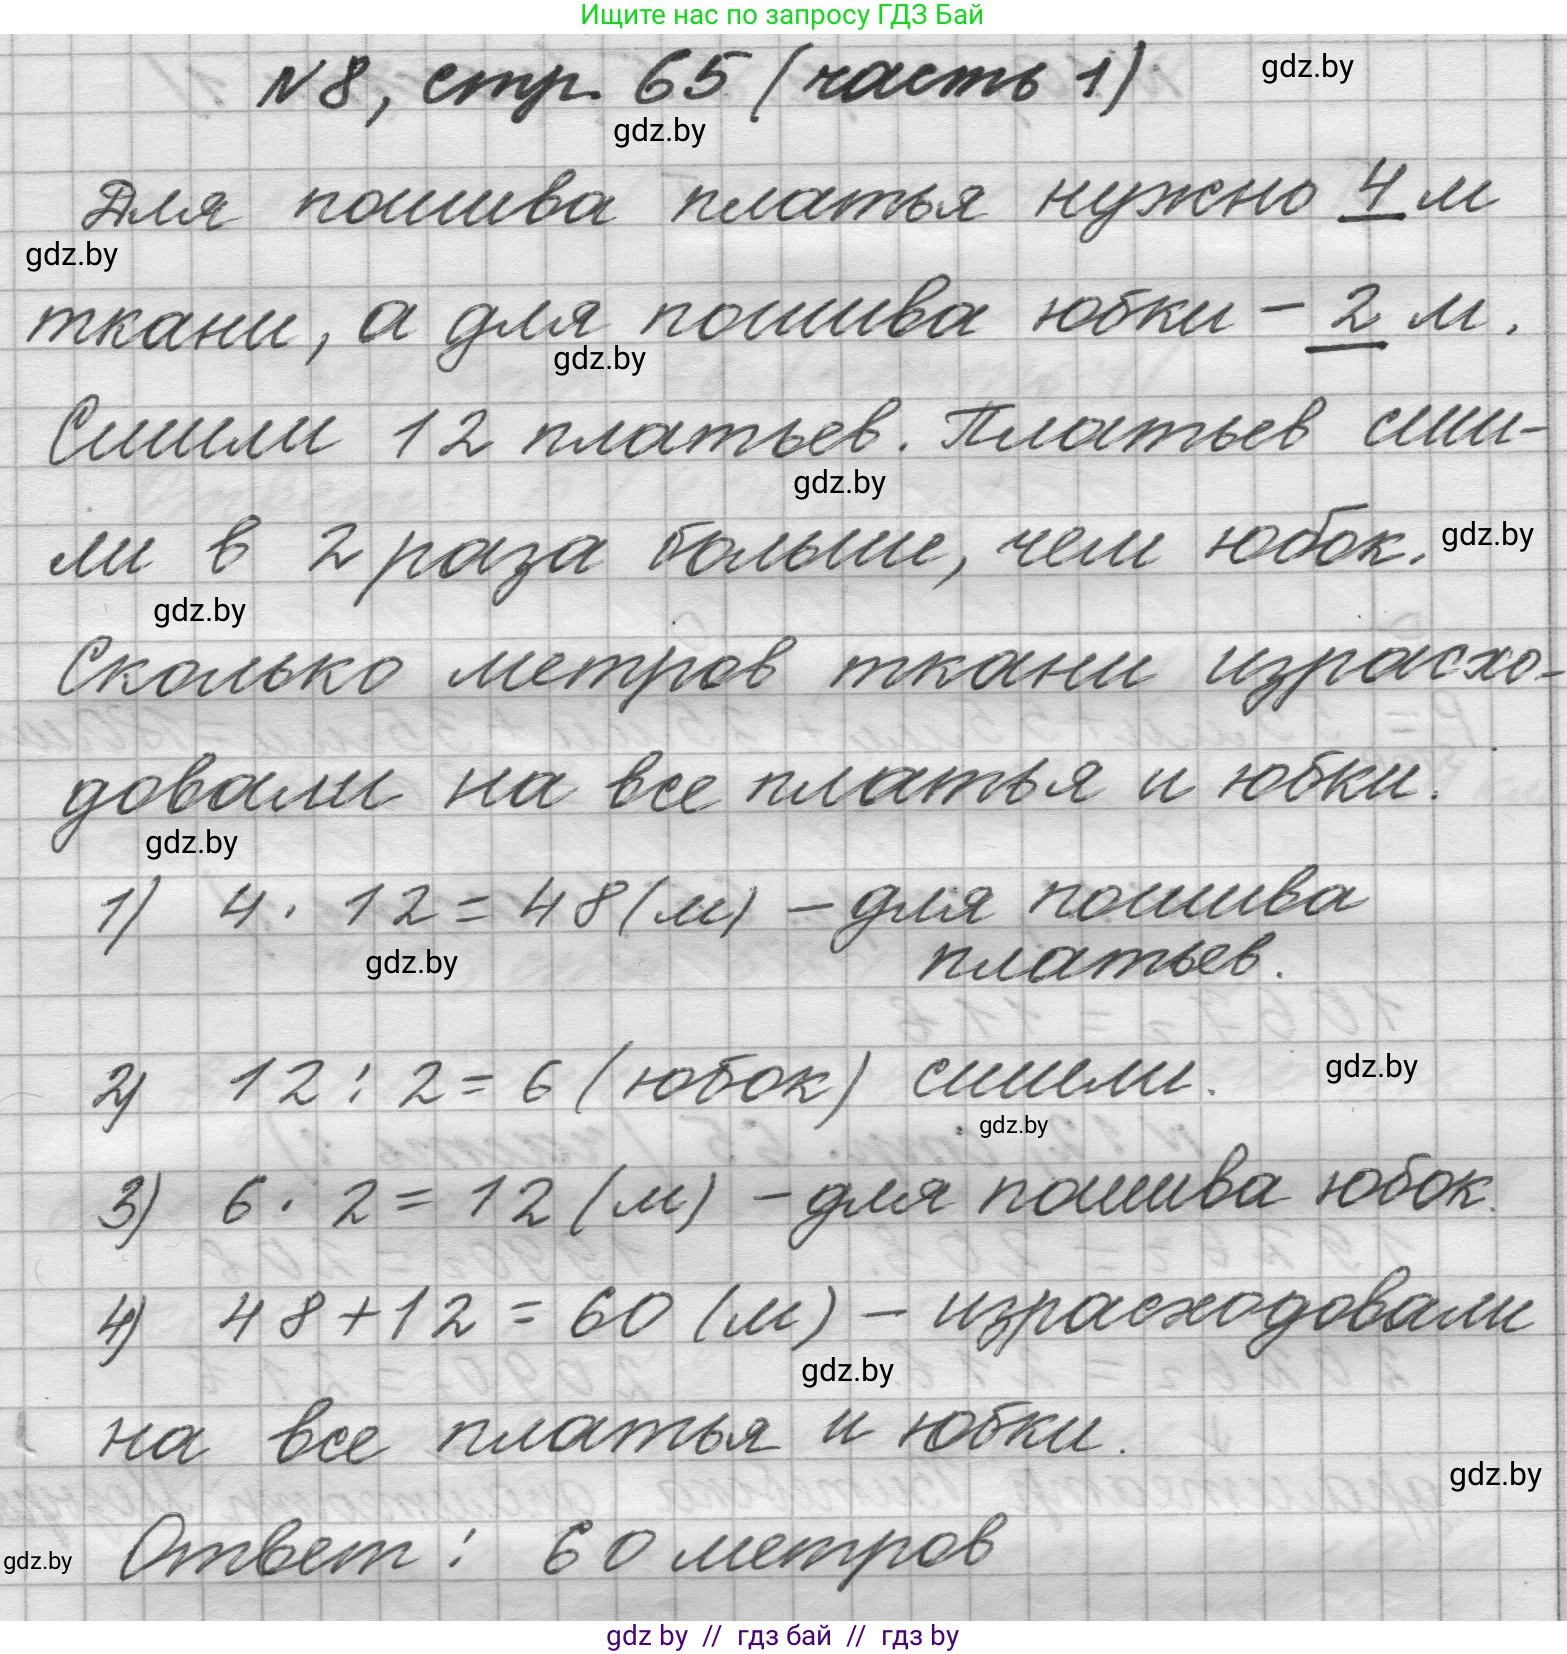 Ищите нас по запросу ГДЗ Бай
N8, стр. 65 (часть 1)
gdz.by
gdz.by
Для пошива платья нужно 4 м
gdz.by
ткани, а для пошива юбки – 2 м.
gdz.by
Сшили 12 платьев. Платьев сши-
gdz.by
ли в 2 раза больше, чем юбок.
gdz.by
gdz.by
Сколько метров ткани израсхо-
довали на все платья и юбки.
gdz.by
1) 4 · 12 = 48 (м) – для пошива
платьев.
gdz.by
2) 12 : 2 = 6 (юбок) сшили.
gdz.by
gdz.by
3) 6 · 2 = 12 (м) – для пошива юбок.
4) 48 + 12 = 60 (м) – израсходовали
gdz.by
на все платья и юбки.
gdz.by
Ответ : 60 метров
gdz.by
gdz by // гдз бай // гдз by